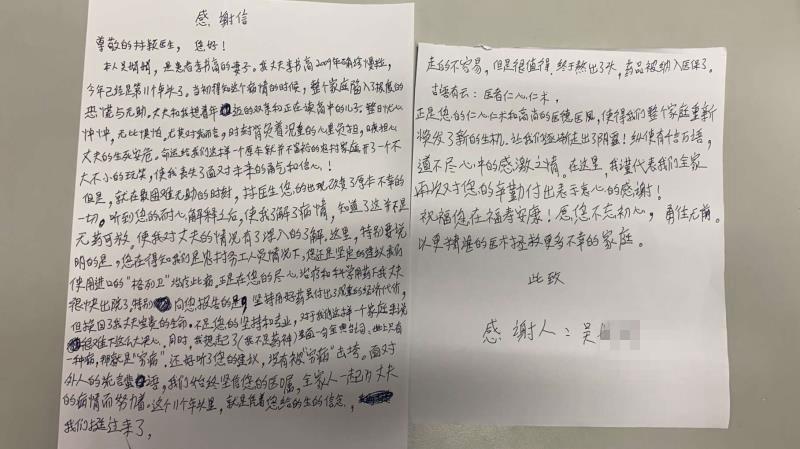 感谢信
尊敬的林颖医生，您好！
本人吴，是患者李书高的妻子。我丈夫李书高2009年确诊慢粒，
今年已经是第11个年头了。当初得知这个病情的时候，整个家庭陷入了极度的
恐慌与无助。丈夫和我想着年近的双亲和正在读高中的儿子，整日忧心
忡忡，无比惧怕，尤其对我而言，时刻背负着沉重的心里负担，哦担心
丈夫的生死安危。命运给我们这样一个原本就并不富裕的农村家庭开了一个不
大不小的玩笑，使我丧失了面对未来的勇气和信心！
但是，就在最困难无助的时刻，林医生您的出现改变了原本不幸的
一切。听到您的耐心解释之后，使我了解了病情，知道了这并不是
无药可救。使我对丈夫的情况有了深入的了解。这里，特别要说
明的是，您在得知我们是农村务工人员情况下，您还是坚定的建议我们
使用进口的"格列卫"治疗此病。正是在您的尽心治疗和科学用药下我丈夫
很快出院了。特别向您报告的是，坚持用好药虽付出了沉重的经济代价，
但换回了我丈夫宝贵的生命。不是您的坚持和专业，对于我们这样一个家庭来说
很难下这么大决心。同时，我想起了《我不是药神》里面一句经典台词，世上只有
一种病，那就是"穷病"。还好听了您的建议，没有被"穷病"击垮。面对
外人的流言蜚语，我们始终坚信您的医嘱，全家人一起为丈夫
的病情而努力着。这个11个年头里，就是凭着您给的生的信念，
我们挺过来了，
走的不容易，但是很值得。终于熬出了头，药品被纳入医保了。
古语有云：医者仁心仁术，
正是您的仁心仁术和高尚的医德医风，使得我们整个家庭重新
焕发了新的生机。让我们逐渐走出了阴霾！纵使有千言万语，
道不尽心中的感激之情。在这里，我谨代表我们全家
再次对您的辛勤付出表示衷心的感谢！
祝福您在福寿安康！愿您不忘初心，勇往无前。
以更精湛的医术拯救更多不幸的家庭。
此致
感谢人：吴